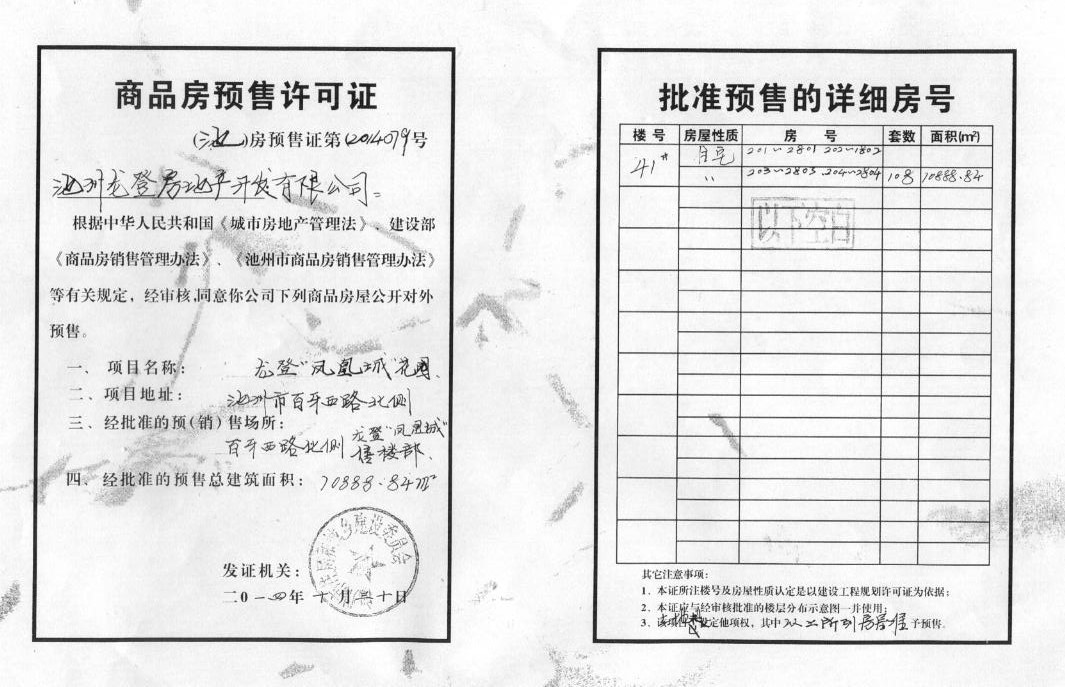 商品房预售许可证
(池)房预售证第(2014079号
池州龙登房地产开发有限公司：
根据中华人民共和国《城市房地产管理法》、建设部
《商品房销售管理办法》、《池州市商品房销售管理办法》
等有关规定，经审核,同意你公司下列商品房屋公开对外
预售。
一、 项目名称： 龙登“凤凰城”花园、
二、项目地址： 池州市百牙西路北侧
三、经批准的预(销)售场所：
百牙西路北侧 龙登“凤凰城”
售楼部、
四、经批准的预售总建筑面积：10888.84m²
建设委员会
发证机关：
二0一四年十月二十日
批准预售的详细房号
楼号 房屋性质 房号 套数 面积(m²)
41# 住宅 201~2801 202~1802
〃 203~2803 204~2804 108 10888.84
以下空白
其它注意事项：
1．本证所注楼号及房屋性质认定是以建设工程规划许可证为依据；
2．本证应与经审核批准的楼层分布示意图一并使用；
3．该项目 设定他项权，其中以上所列房屋准予预售。